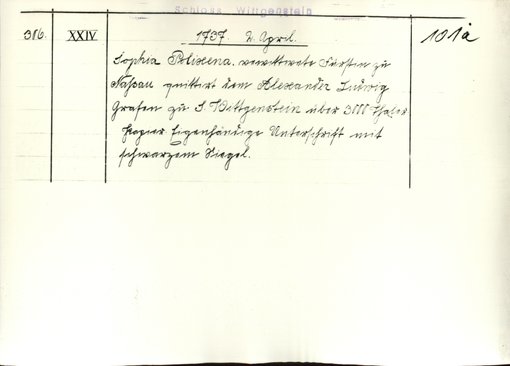 Schloss Wittgenstein
316. XXIV 1737. 2. April. 101a
Sophia Polixena, verwittwete Fürstin zu
Nassau quittirt dem Alexander Ludwig
Grafen zu S. Wittgenstein über 3000 Thaler
Papier Eigenhändige Unterschrift mit
schwarzem Siegel.